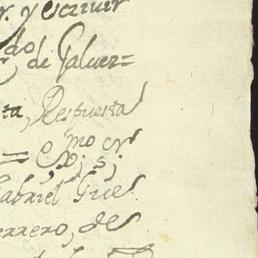 r. y escriuir
do de Galuer=
ta, Respuesta
= e, mo
Gabriel Gue
errero, de